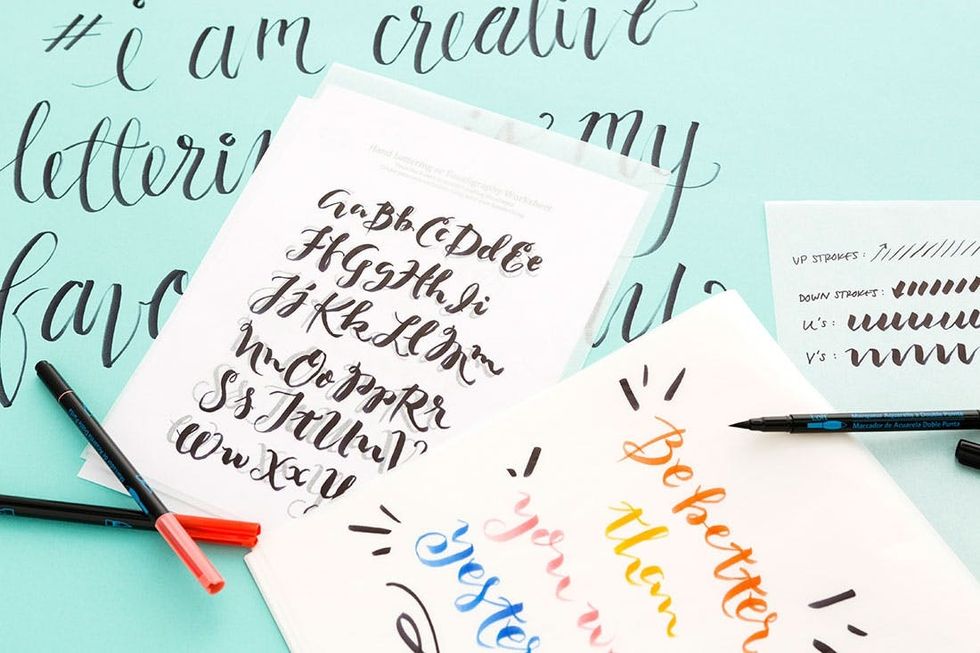 #i am creative
lettering my
favo
Hand Lettering or Faux-ligraphy Worksheet
Aa Bb Cc Dd Ee
Ff Gg Hh Ii
Jj Kk Ll Mm
Nn Oo Pp Rr
Ss Tt Uu V
Ww Xx Y
UP STROKES:
DOWN STROKES:
U's:
V's:
Marcador de Acuarela Doble Punta
Be better
than
you w
yester